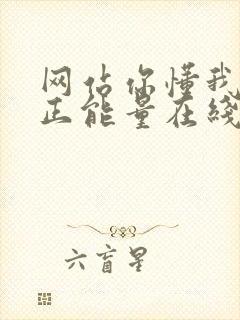 网站你懂我
正能量在线
六盲星